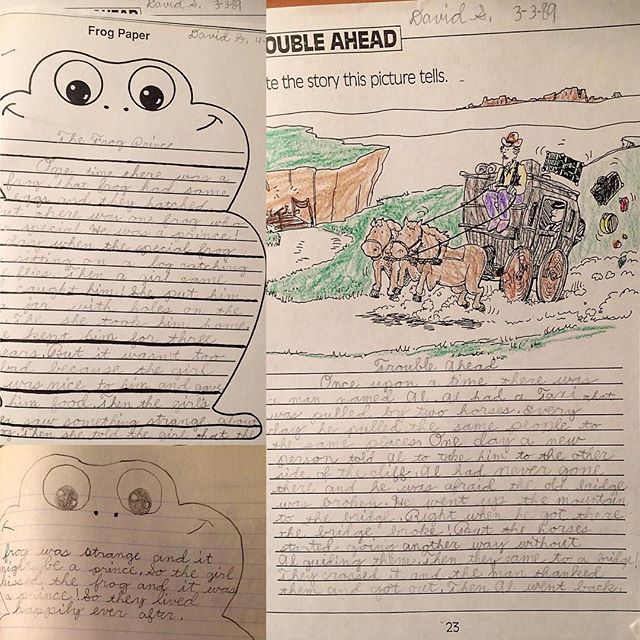 AHEAD
Frog Paper
David G.
The Frog Prince
One time there was a
frog. That frog had some
eggs and they hatched
there was one frog who
special. He was a prince!
when the special frog
sitting on a log catching
flies. Then a girl came
caught him! She put him
jar with holes on the
she took him home.
kept him for three
years. But it wasn't too
bad because the girl
was nice to him and gave
him food. Then the girl's
saw something strange about
Then she told the girl that the
frog was strange and it
might be a prince. So the girl
kissed the frog and it was
a prince! So they lived
happily ever after.
David G. 3-3-89
OUBLE AHEAD
te the story this picture tells.
Trouble Ahead
Once upon a time there was
a man named Al. Al had a Taxi that
was pulled by two horses. Every
day he pulled the same people to
the same places. One day a new
person told Al to take him to the other
side of the cliff. Al had never gone
there and he was afraid the old bridge
was broken. He went up the mountain
to the bridge. Right when he got there
the bridge broke! But the horses
started going another way without
Al guiding them. Then they came to a bridge!
They crossed it and the man thanked
them and got out. Then Al went back.
23